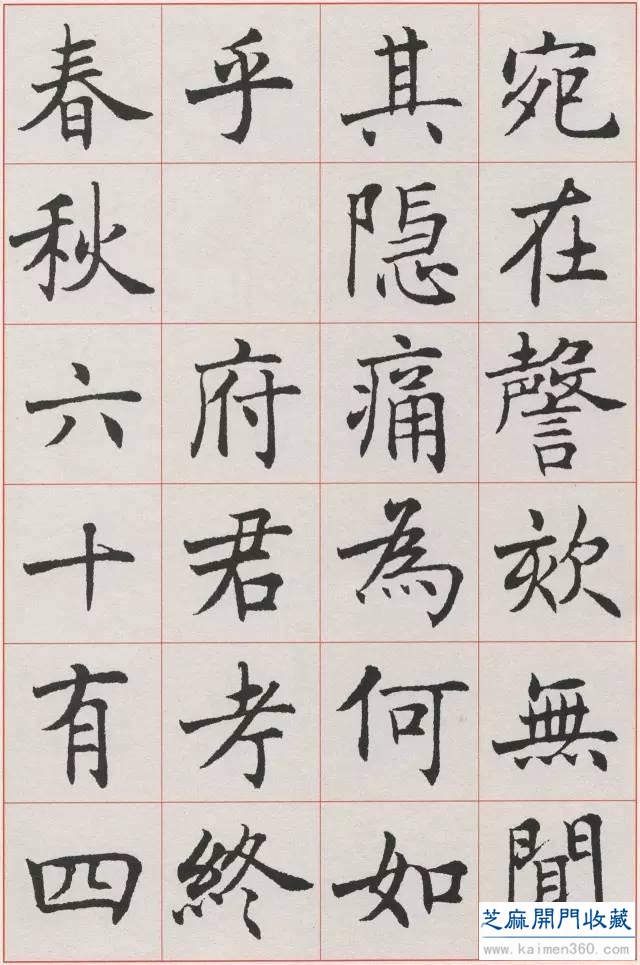 宛在謦欬無聞
其隠痛為何如
乎府君考終
春秋六十有四
芝麻開門收藏
www.kaimen360.com